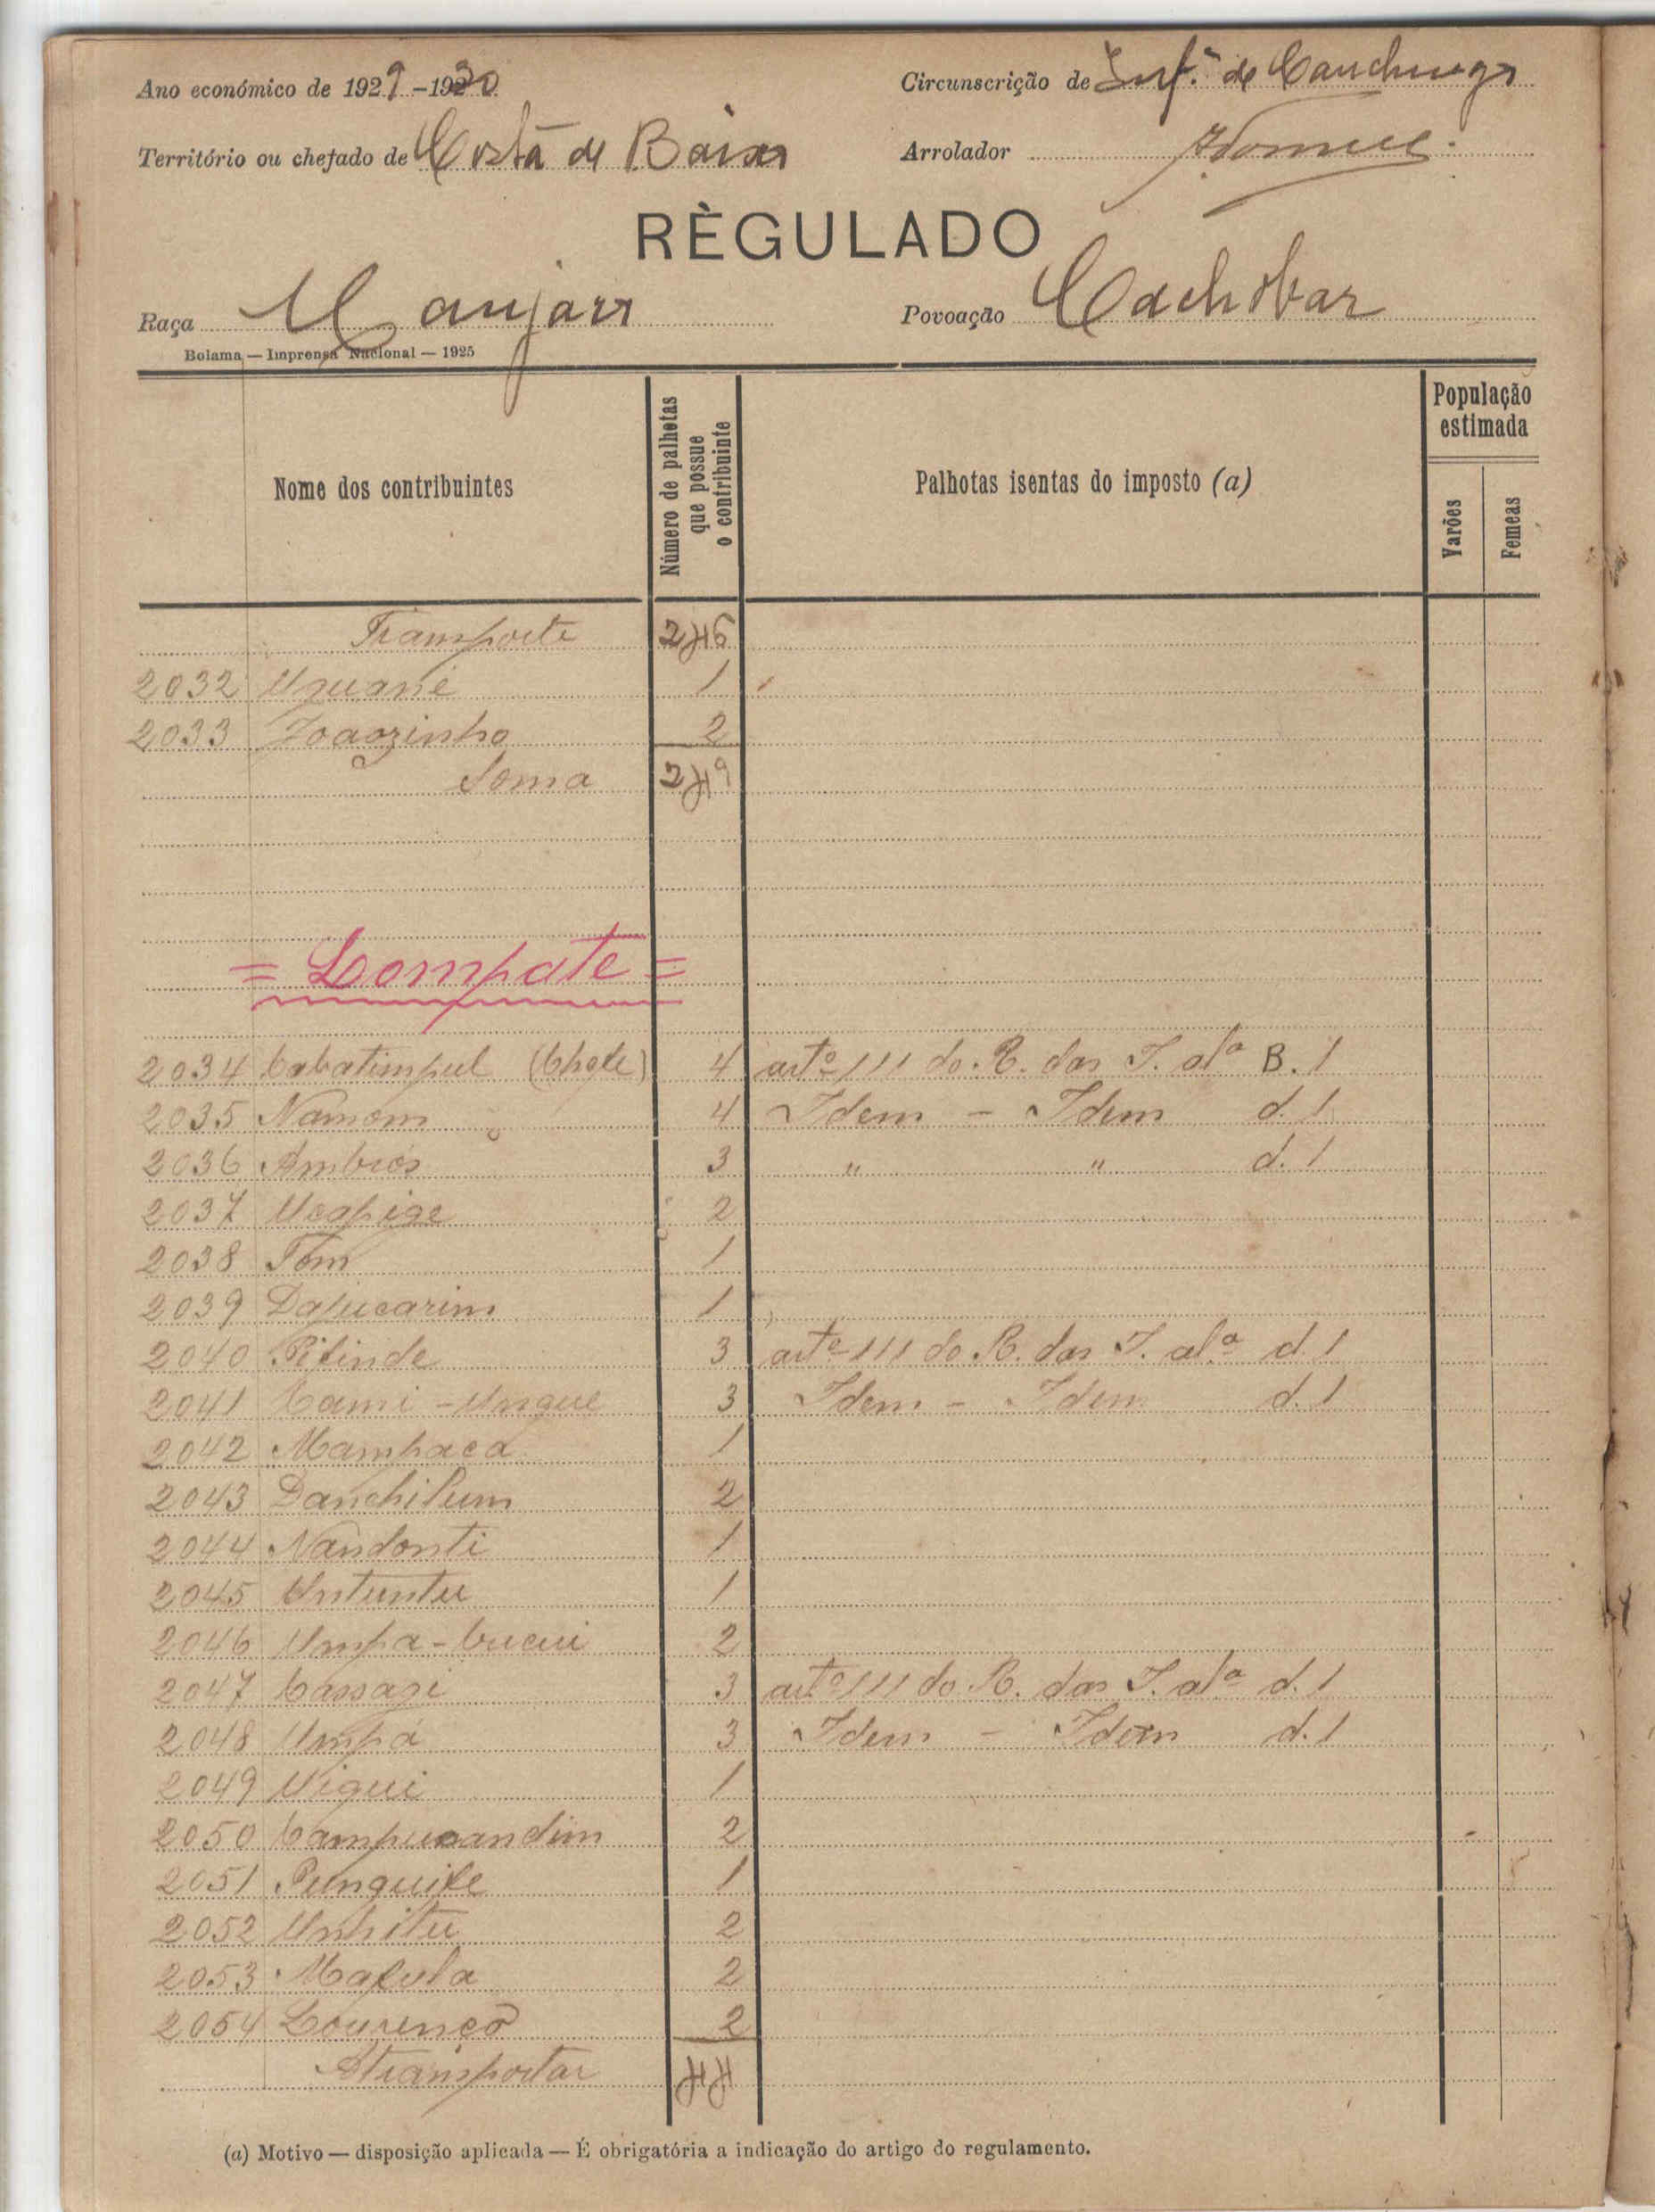 Ano económico de 1929-1930
Circunscrição de de Canchungo
Território ou chefado de Costa de Baixo
Arrolador
RÈGULADO
Raça Manjaco
Povoação Cachobar
Bolama — Imprensa Nacional — 1925
Nome dos contribuintes
Número de palhotas que possue o contribuinte
Palhotas isentas do imposto (a)
População estimada
Varões
Femeas
Transporte 276
2032 1
2033 Joaozinho 2
Soma 279
= Lompate =
2034 Cabatimpul (Chefe) 4 artº 111 do R. das I. alª B. 1
2035 Namom 4 Idem - Idem d. 1
2036 Ambrós 3 " " d. 1
2037 Ucapige 2
2038 Tom 1
2039 Dajucarim 1
2040 Pifinde 3 artº 111 do R. das I. alª d. 1
2041 Cami-Ungue 3 Idem - Idem d. 1
2042 Mampaca 1
2043 Danchilum 2
2044 Nandonti 1
2045 Untuntu 1
2046 Umpa-Cucui 2
2047 Cassagi 3 artº 111 do R. das I. alª d. 1
2048 Umpá 3 Idem - Idem d. 1
2049 1
2050 2
2051 Punguife 1
2052 2
2053 Mafula 2
2054 Lourenço 2
A transportar
(a) Motivo — disposição aplicada — É obrigatória a indicação do artigo do regulamento.